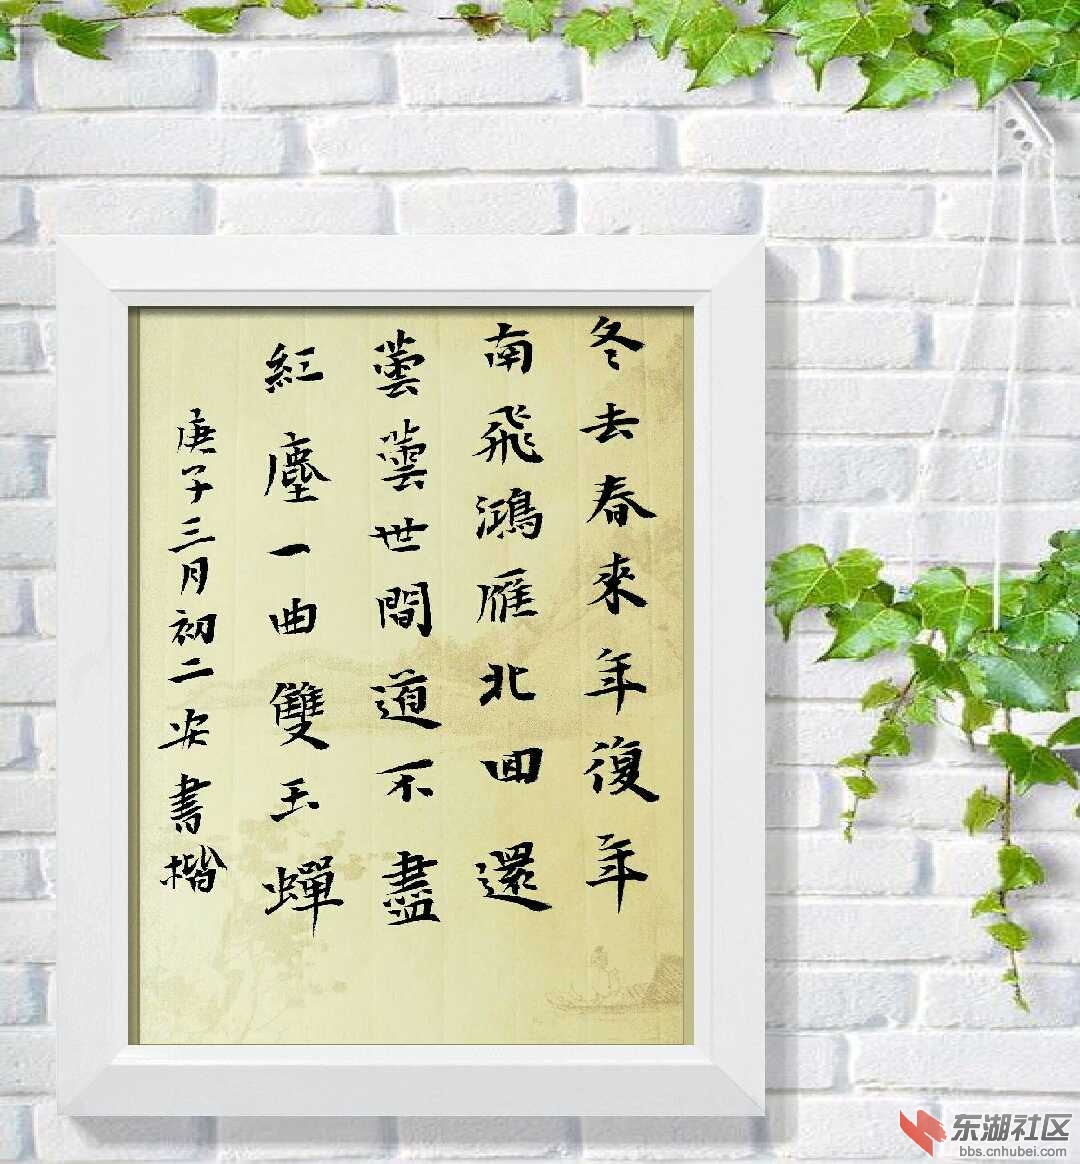 冬去春來年復年
南飛鴻雁北回還
蕓蕓世間道不盡
紅塵一曲雙玉蟬
庚子三月初二安書楷
东湖社区
bbs.cnhubei.com